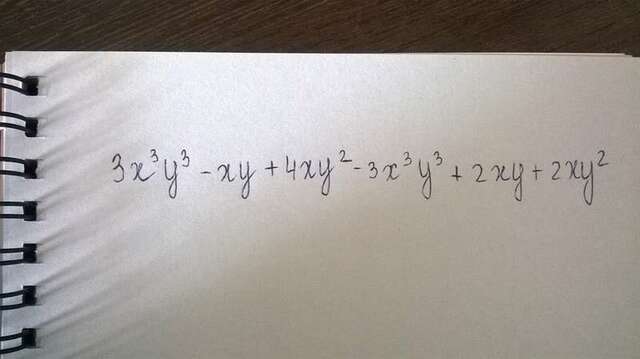 3x³y³ - xy + 4xy² - 3x³y³ + 2xy + 2xy²